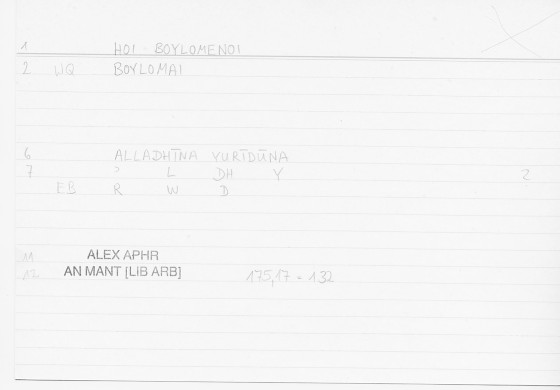 1 HOI BOYLOMENOI
2 LIQ BOYLOMAI
6 ALLADHĪNA YURĪDŪNA
7 ʾ L DH Y 2
EB R W D
11 ALEX APHR
12 AN MANT [LIB ARB] 175,17 = 132